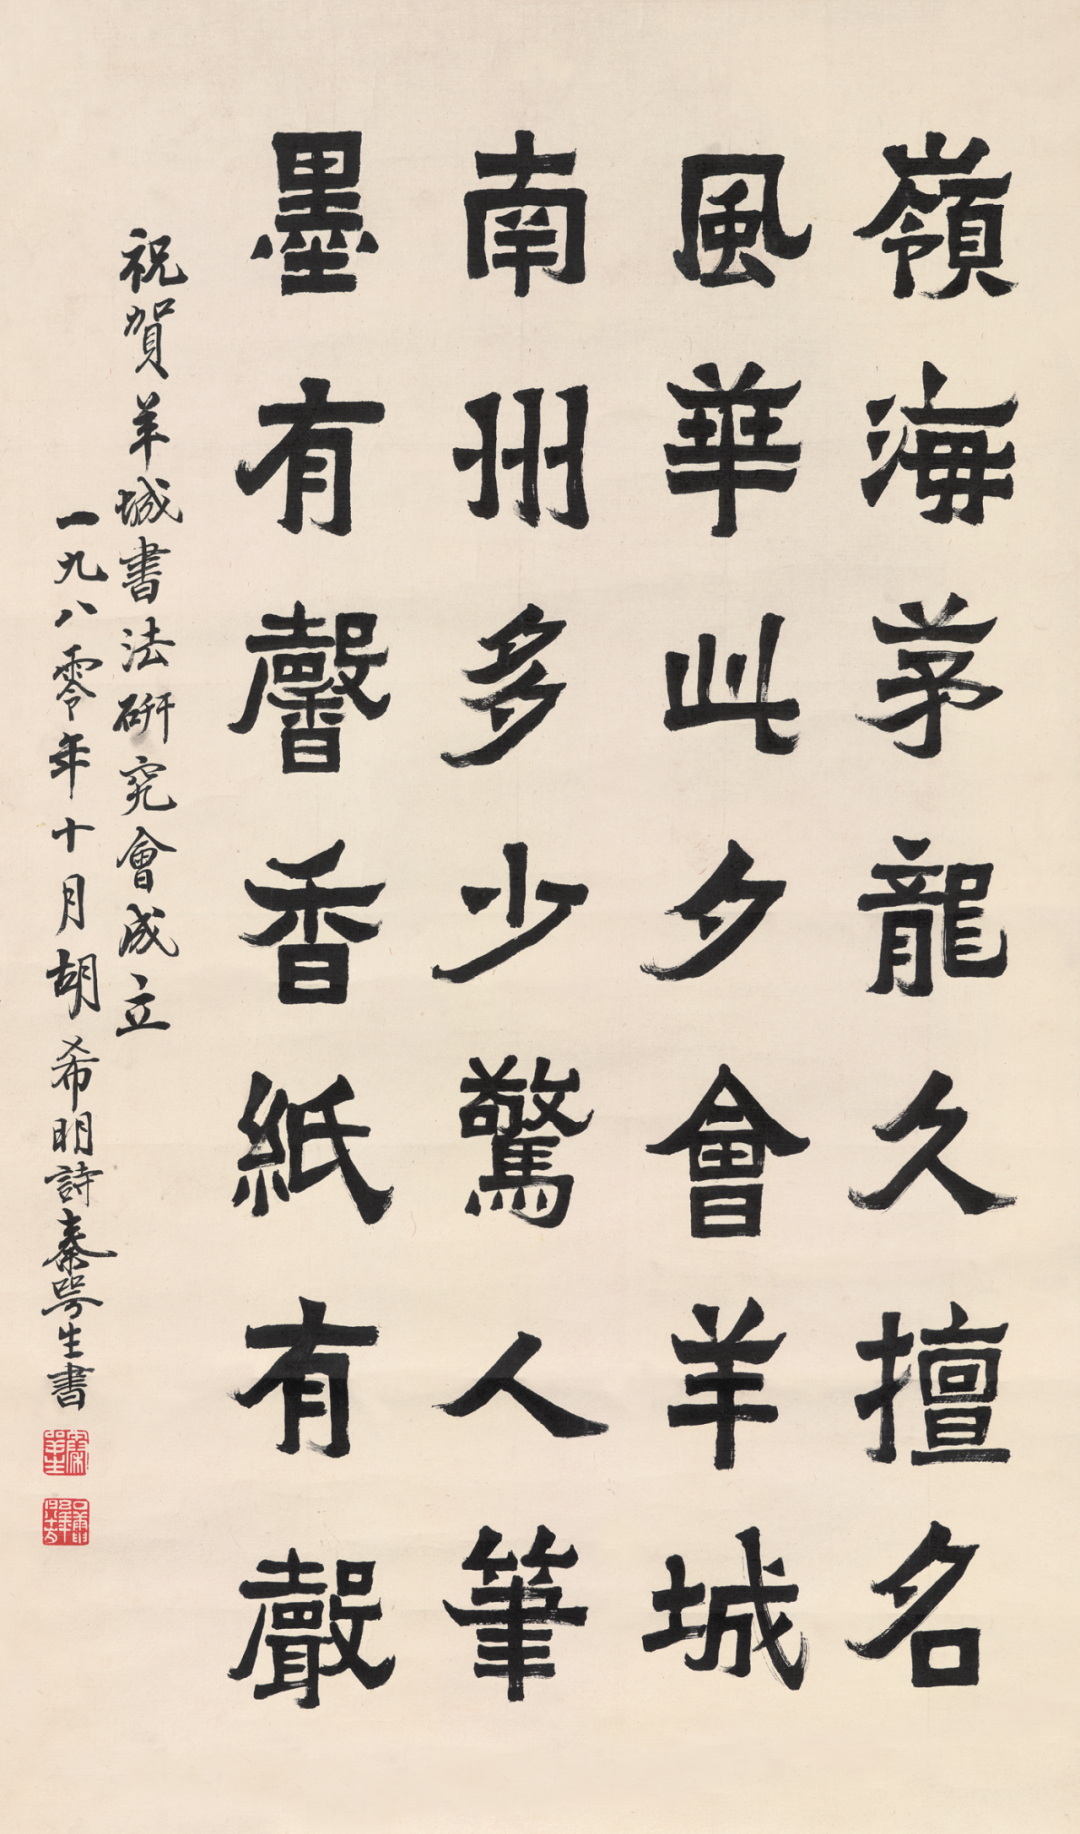 嶺海茅龍久擅名
風華此夕會羊城
南州多少驚人筆
墨有馨香紙有聲
祝賀羊城書法研究會成立
一九八零年十月胡希明詩秦咢生書